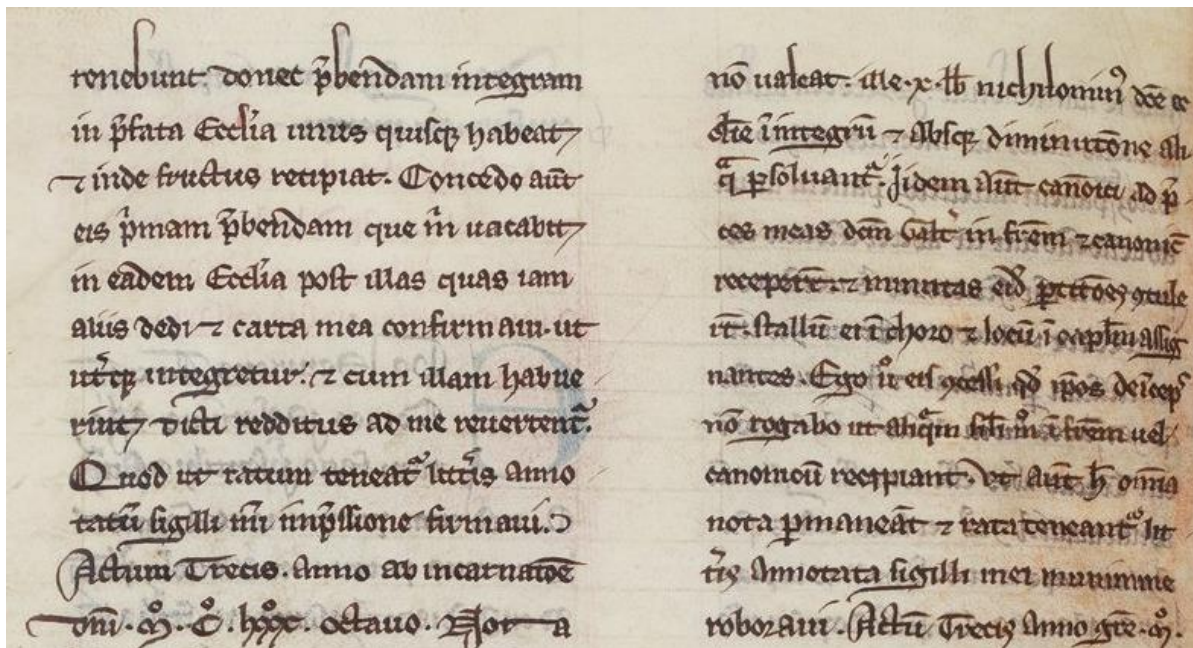 tenebunt donec p̄bendam integram
in p̄fata Eccl̄ia unus quisq; habeat
⁊ inde fructus recipiat. Concedo aūt
eis p̄mam p̄bendam que m̄ uacabit
in eadem Eccl̄ia post illas quas iam
aliis dedi ⁊ carta mea confirmaui. ut
ut̄q; integretur. ⁊ cum illam habue
rint dicti redditus ad me reuertent̄.
Quod ut ratum teneat̄ litt̄is anno
tatū sigilli m̄i imp̄ssione firmaui.
Actum Trecis. Anno ab incarnatōe
dn̄i. m̊. c̊. lxxx̊. octauo. Not a
nō ualeat. ille .x. lb̄ nichilomin᷒ dc̄e ec
cl̄ie ī integrū ⁊ absq; diminutōne ali
q̄ p̱soluant̄. Jidem aūt canōici ad p̄
ces meas dn̄m Galt̄ in fr̄em ⁊ canonic̄
recepert̄. ⁊ minutas eid̄ p̱titōes ꝯtule
rt̄. stallū ei ī choro ⁊ locū ī capl̄m assig
nantes. Ego ů eis ꝯcessi qd̄ ip̄os deīcep̄
nō rogabo ut aliq̄m filī m̊ ī fr̄em uel
canonicū recipiant. Vt aūt h̄ om̄ia
nota p̱maneāt ⁊ rata teneant̄ lit
t̄is annotata sigilli mei munimine
roboraui. Actū Trecis Anno gr̄e. m̊.